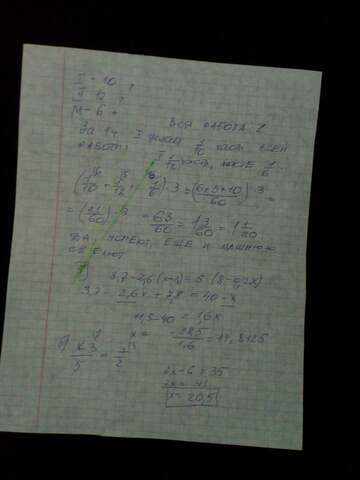 I - 10 ?
II 12 ?
III - 6 ?
ВСЯ РАБОТА 1
За 1ч I делает 1/10 часть всей
работы, II 1/12 часть, 1/6
(1/10 + 1/12 + 1/6) · 3 = (6+5+10)/60 · 3 =
= (21/60) · 3 = 63/60 = 1 3/60 = 1 1/20
ДА, УСПЕЮТ, ЕЩЕ И
3,7-2,6(x-3) = 5(8-0,2x)
3,7 - 2,6x + 7,8 = 40 - x
11,5-40 = 1,6x
x = -28,5/1,6 = 17,8125
б) x-3/5 = 7/2
2x-6=35
2x = 41
x=20,5